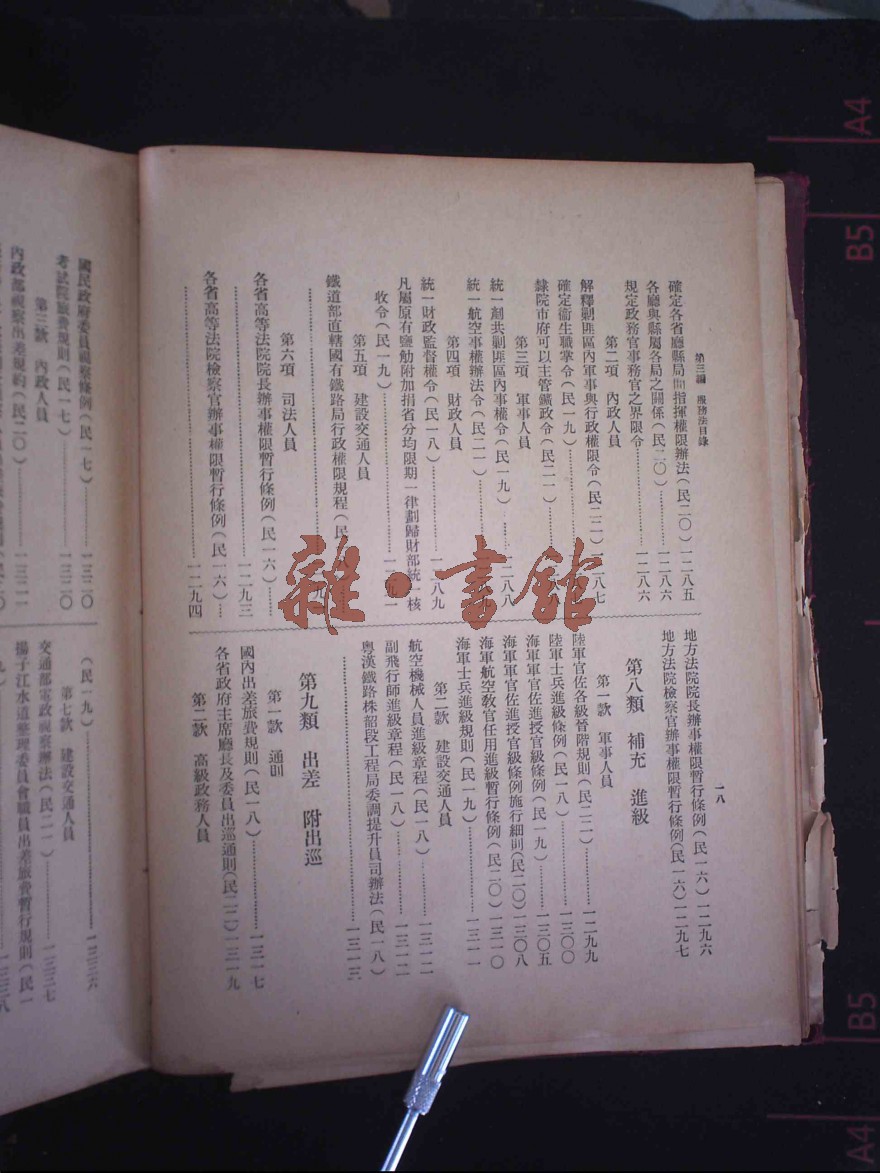 第三編 服務法目錄
一八
確定各省廳縣局間指揮權限辦法(民二〇)一二八五
各廳與縣屬各局之關係(民二〇)……一二八六
規定政務官事務官之界限令……一二八六
第二項 內政人員
解釋剿匪區內軍事與行政權限令(民二二)一二八七
確定衞生職掌令(民一九)
隸院市府可以主管鑛政令(民二一)
第三項 軍事人員
統一剿共剿匪區內事權令(民一九)……一二八八
統一航空事權辦法令(民二一)
第四項 財政人員
統一財政監督權令(民一八)……一二八九
凡屬原有鹽觔附加捐省分均限期一律劃歸財部統一核
收令(民一九)
第五項 建設交通人員
鐵道部直轄國有鐵路局行政權限規程(民
第六項 司法人員
各省高等法院院長辦事權限暫行條例(民一六)……
……一二九三
各省高等法院檢察官辦事權限暫行條例(民一六)……
……一二九四
地方法院院長辦事權限暫行條例(民一六)一二九六
地方法院檢察官辦事權限暫行條例(民一六)一二九七
第八類 補充 進級
第一款 軍事人員
陸軍官佐各級晉階規則(民二二)……一二九九
陸軍士兵進級條例(民一八)……一三〇〇
海軍軍官佐進授官級條例(民一九)……一三〇五
海軍軍官佐進授官級條例施行細則(民二〇)一三〇八
海軍航空教官任用進級暫行條例(民二〇)一三一〇
海軍士兵進級規則(民一九)……一三一一
第二款 建設交通人員
航空機械人員進級章程(民一八)……一三一二
副飛行師進級章程(民一八)……一三一二
粵漢鐵路株韶段工程局委調提升員司辦法(民一八)
……一三一三
第九類 出差 附出巡
第一款 通則
國內出差旅費規則(民一八)……一三一七
各省政府主席廳長及委員出巡通則(民二二)一三一九
第二款 高級政務人員
國民政府委員視察條例(民一七)……一三二〇
考試院旅費規則(民一七)……一三二〇
第三款 內政人員
內政部視察出差規約(民二〇)……一三二一
(民一九)……一三三六
第七款 建設交通人員
交通部電政視察辦法(民二一)……一三三七
揚子江水道整理委員會職員出差旅費暫行規則(民一
雜·書館
A4
B5
B5
A4